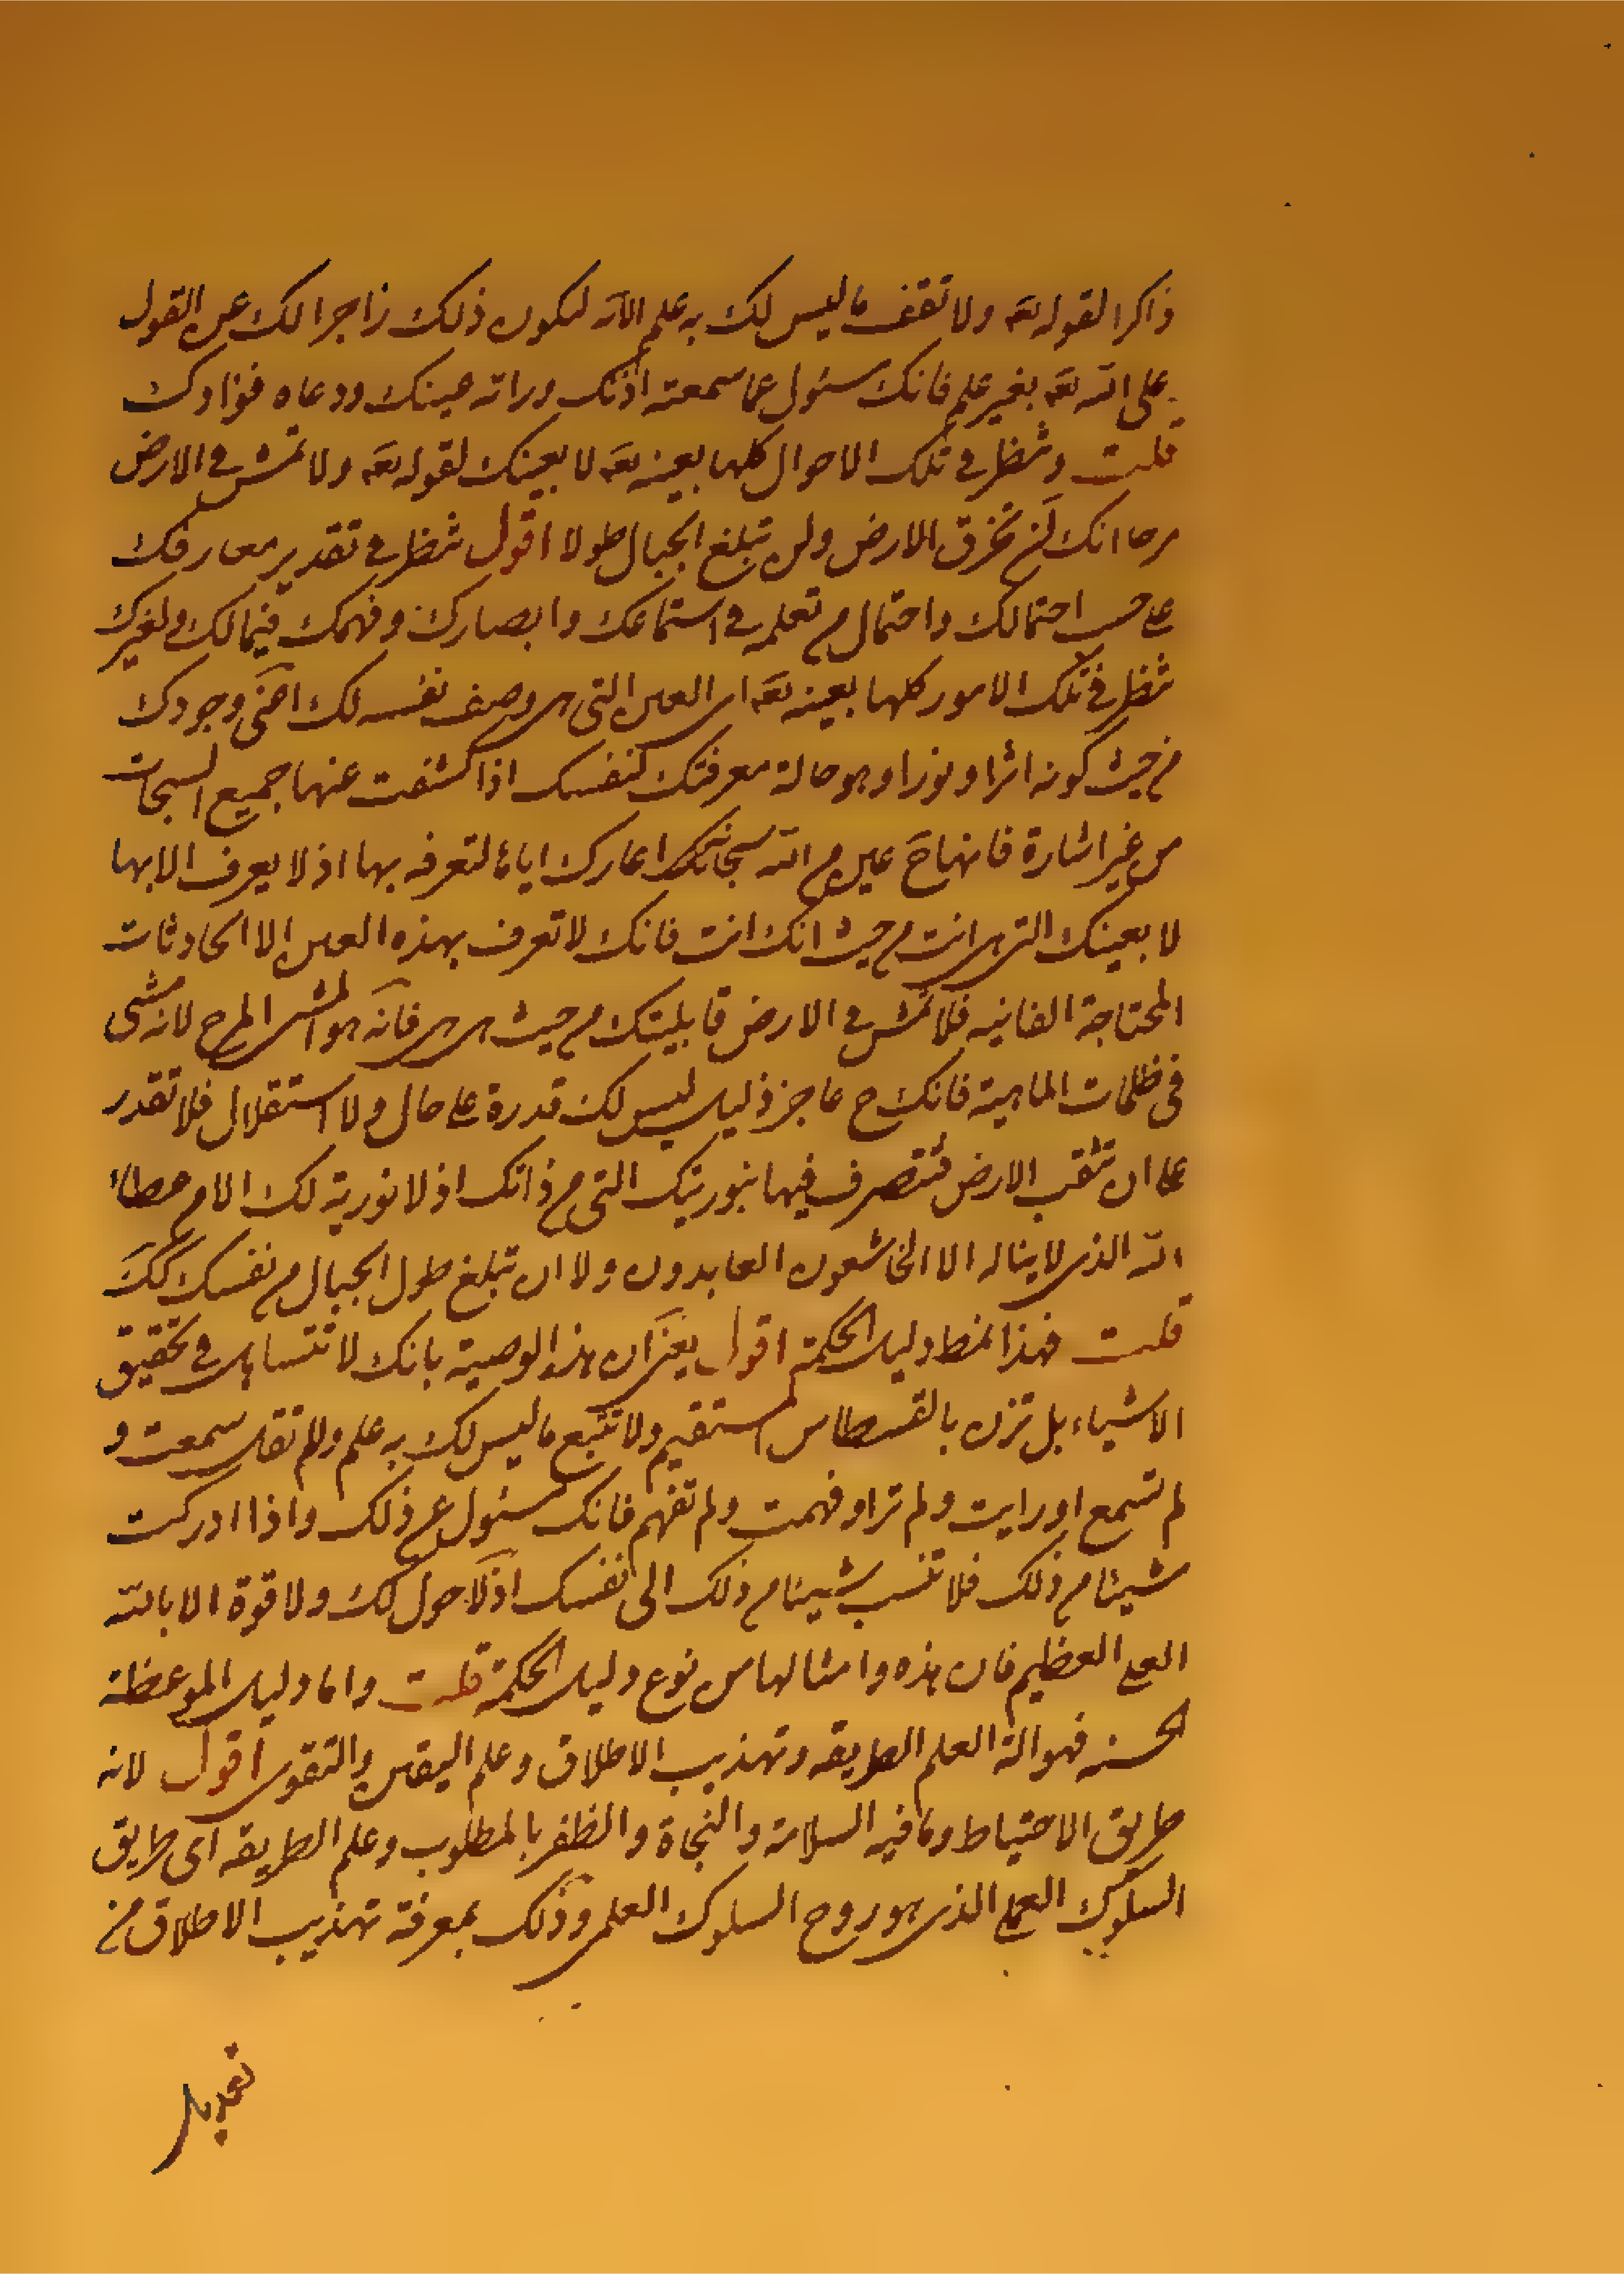 ذاكرا لقوله تعه ولا تقف ما ليس لك به علم الآية ليكون ذلك زاجرا لك عن القول
على الله تعه بغير علم فانك مسئول عما سمعته اذنك وراته عينك ووعاه فؤادك
قلت وتنظر في تلك الاحوال كلها بعينه تعه لا بعينك لقوله تعه ولا تمش في الارض
مرحا انك لن تخرق الارض ولن تبلغ الجبال طولا اقول تنظر في تقدير معارفك
على حسب احتمالك واحتمال من تعلمه في استماعك وابصارك وفهمك فيما لك ولغيرك
تنظر في تلك الامور كلها بعينه تعه اى العين التى هى وصف نفسه لك اعنى وجودك
من حيث كونه اثرا ونورا وهو حالة معرفتك لنفسك اذا كشفت عنها جميع السبحات
من غير اشارة فانها ح عين من الله سبحانه اعارك اياها لتعرفه بها اذ لا يعرف الا بها
لا بعينك التى هى انت من حيث انك انت فانك لا تعرف بهذه العين الا الحادثات
المحتاجة الفانيه فلا تمش في الارض قابليتك من حيث هى هى فانه هو المشى المرح لانه مشى
في ظلمات الماهية فانك ح عاجز ذليل ليس لك قدرة على حال ولا استقلال فلا تقدر
على ان تثقب الارض فتتصرف فيها بنوريتك التى من ذاتك اذ لا نورية لك الا من عطاء
الله الذى لا يناله الا الخاشعون العابدون ولا ان تبلغ طول الجبال من نفسك كك
قلت فهذا نمط دليل الحكمة اقول يعنى ان هذه الوصية بانك لا تتساهل في تحقيق
الاشياء بل تزن بالقسطاس المستقيم ولا تتبع ما ليس لك به علم ولا تقل سمعت و
لم تسمع او رايت ولم تر او فهمت ولم تفهم فانك مسئول عن ذلك واذا ادركت
شيئا من ذلك فلا تنسب شيئا من ذلك الى نفسك اذ لا حول لك ولا قوة الا بالله
العلى العظيم فان هذه وامثالها من نوع دليل الحكمة قلت واما دليل الموعظة
الحسنه فهو الة العلم الطريقه وتهذيب الاخلاق وعلم اليقين والتقوى اقول لانه
طريق الاحتياط وما فيه السلامة والنجاة والظفر بالمطلوب وعلم الطريقه اى طريق
السلوك العملى الذى هو روح السلوك العلمى وذلك بمعرفة تهذيب الاخلاق من